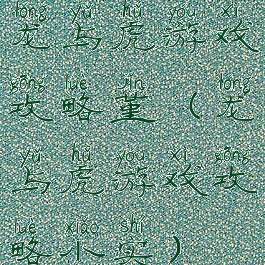 lóng yǔ hǔ yóu xì
龙与虎游戏
gōng lüè jǐn lóng
攻略堇(龙
yǔ hǔ yóu xì gōng
与虎游戏攻
lüè xiǎo shí
略小实)